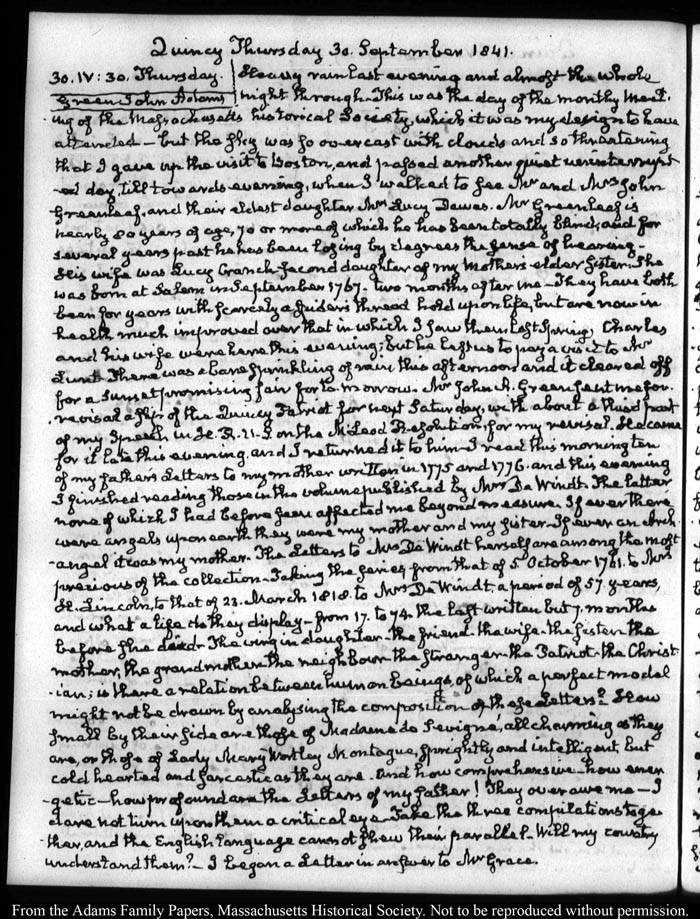 Quincy Thursday 30. September 1841.
30. IV: 30. Thursday. Heavy rain last evening and almost the whole
Green John Adams night through. This was the day of the monthy Meet-
ing of the Massachusetts historical Society, which it was my design to have
attended – but the sky was so overcast with clouds and so threatening
that I gave up the visit to Boston, and passed another quiet uninterrupt-
ed day, till towards evening, when I walked to see Mr and Mrs John
Greenleaf, and their eldest daughter Mrs Lucy Dawes. Mr Greenleaf is
nearly 80 years of age, 70 or more of which he has been totally blind, and for
several years past he has been losing by degrees the sense of hearing –
His wife was Lucy Cranch second daughter of my Mother's elder Sister. She
was born at Salem in September 1767. two months after me – They have both
been for years with scarcely a spider's thread hold upon life, but are now in
health much improved over that in which I saw them last Spring, Charles
and his wife were here this evening; but he left us to pay a visit to Mr
Lunt. There was a bare sprinkling of rain this afternoon and it cleared off
for a Sunset promising fair for to-morrow. Mr John A. Green sent me for
revisal a slip of the Quincy Patriot for next Saturday, with about a third part
of my Speech in H. R. U.S on the McLeod Resolution, for my revisal. He came
for it late this evening, and I returned it to him. I read this morning ten
of my father's Letters to my mother written in 1775 and 1776. and this evening
I finished reading those in the volume published by Mrs De Windt. The latter
none of which I had before seen affected me beyond measure. If ever there
were angels upon earth they were my mother and my Sister. If ever an Arch-
angel it was my mother. The Letters to Mrs De Windt herself are among the most
precious of the collection. Taking the series, from that of 5 October 1761. to Mrs
H. Lincoln, to that of 23. March 1818. to Mrs De Windt, a period of 57. years,
and what a life do they display – from 17. to 74. the last written but 7. months
before she died. The virgin daughter – the friend – the wife – the sister – the
mother, the grandmother – the neighbour – the stranger – the Patriot – the Christ-
ian; is there a relation between human beings, of which a perfect model
might not be drawn by analysing the composition of these Letters? How
small by their side are those of Madame de Sevigné, all charming as they
are, or those of Lady Mary Wortley Montague, sprightly and intelligent but
cold hearted and sarcastic as they are. And how comprehensive – how ener-
getic – how profound are the Letters of my father! They overawe me – I
dare not turn upon them a critical eye. Take the three compilations toge-
ther, and the English language cannot shew their parallel. Will my country
understand them? – I began a Letter in answer to Mr Grace.
From the Adams Family Papers, Massachusetts Historical Society. Not to be reproduced without permission.